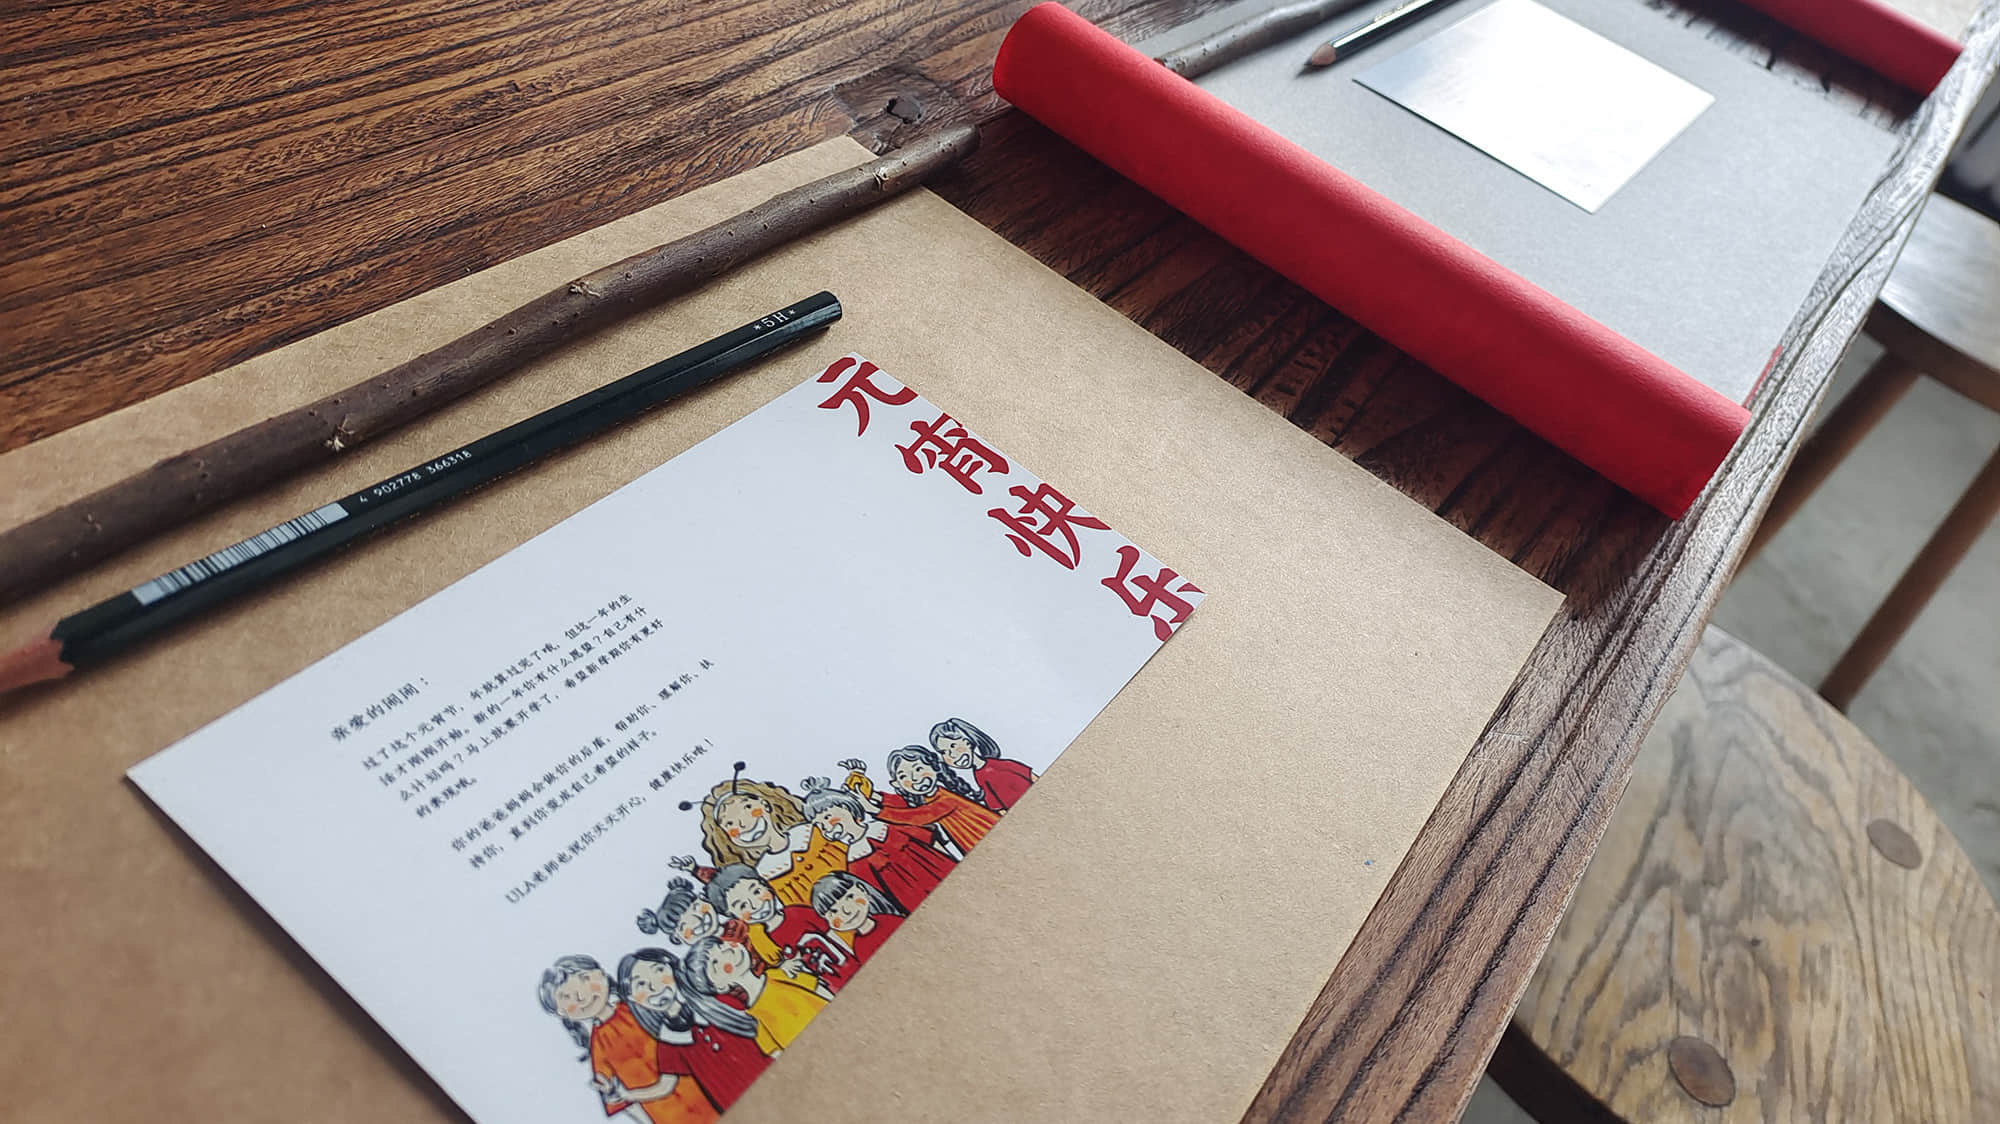 *5H*
4 902778 366318
元宵快乐
亲爱的闹闹：
过了这个元宵节，年就算过完了哦，但这一年的生
活才刚刚开始。新的一年你有什么愿望？自己有什
么计划吗？马上就要开学了，希望新学期你有更好
的表现哦。
你的爸爸妈妈会做你的后盾，帮助你、理解你、扶
持你，直到你变成自己希望的样子。
ULA老师也祝你天天开心，健康快乐哦！